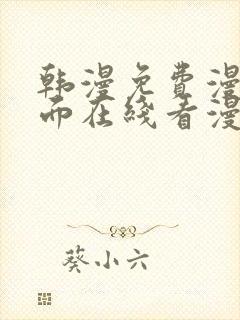 韩漫免费漫
而在线看漫
葵小六